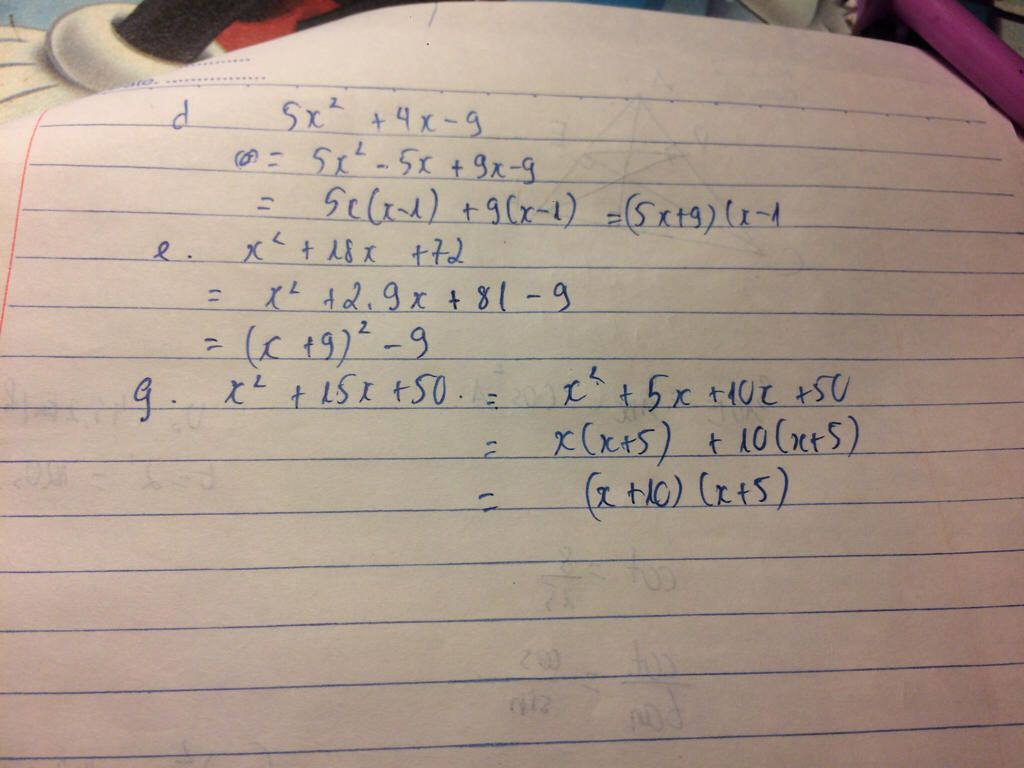 d 5x² + 4x - 9
= 5x² - 5x + 9x - 9
= 5x(x-1) + 9(x-1) = (5x+9)(x-1
e. x² + 18x + 72
= x² + 2.9x + 81 - 9
= (x + 9)² - 9
g. x² + 15x + 50. = x² + 5x + 10x + 50
= x(x+5) + 10(x+5)
= (x+10)(x+5)